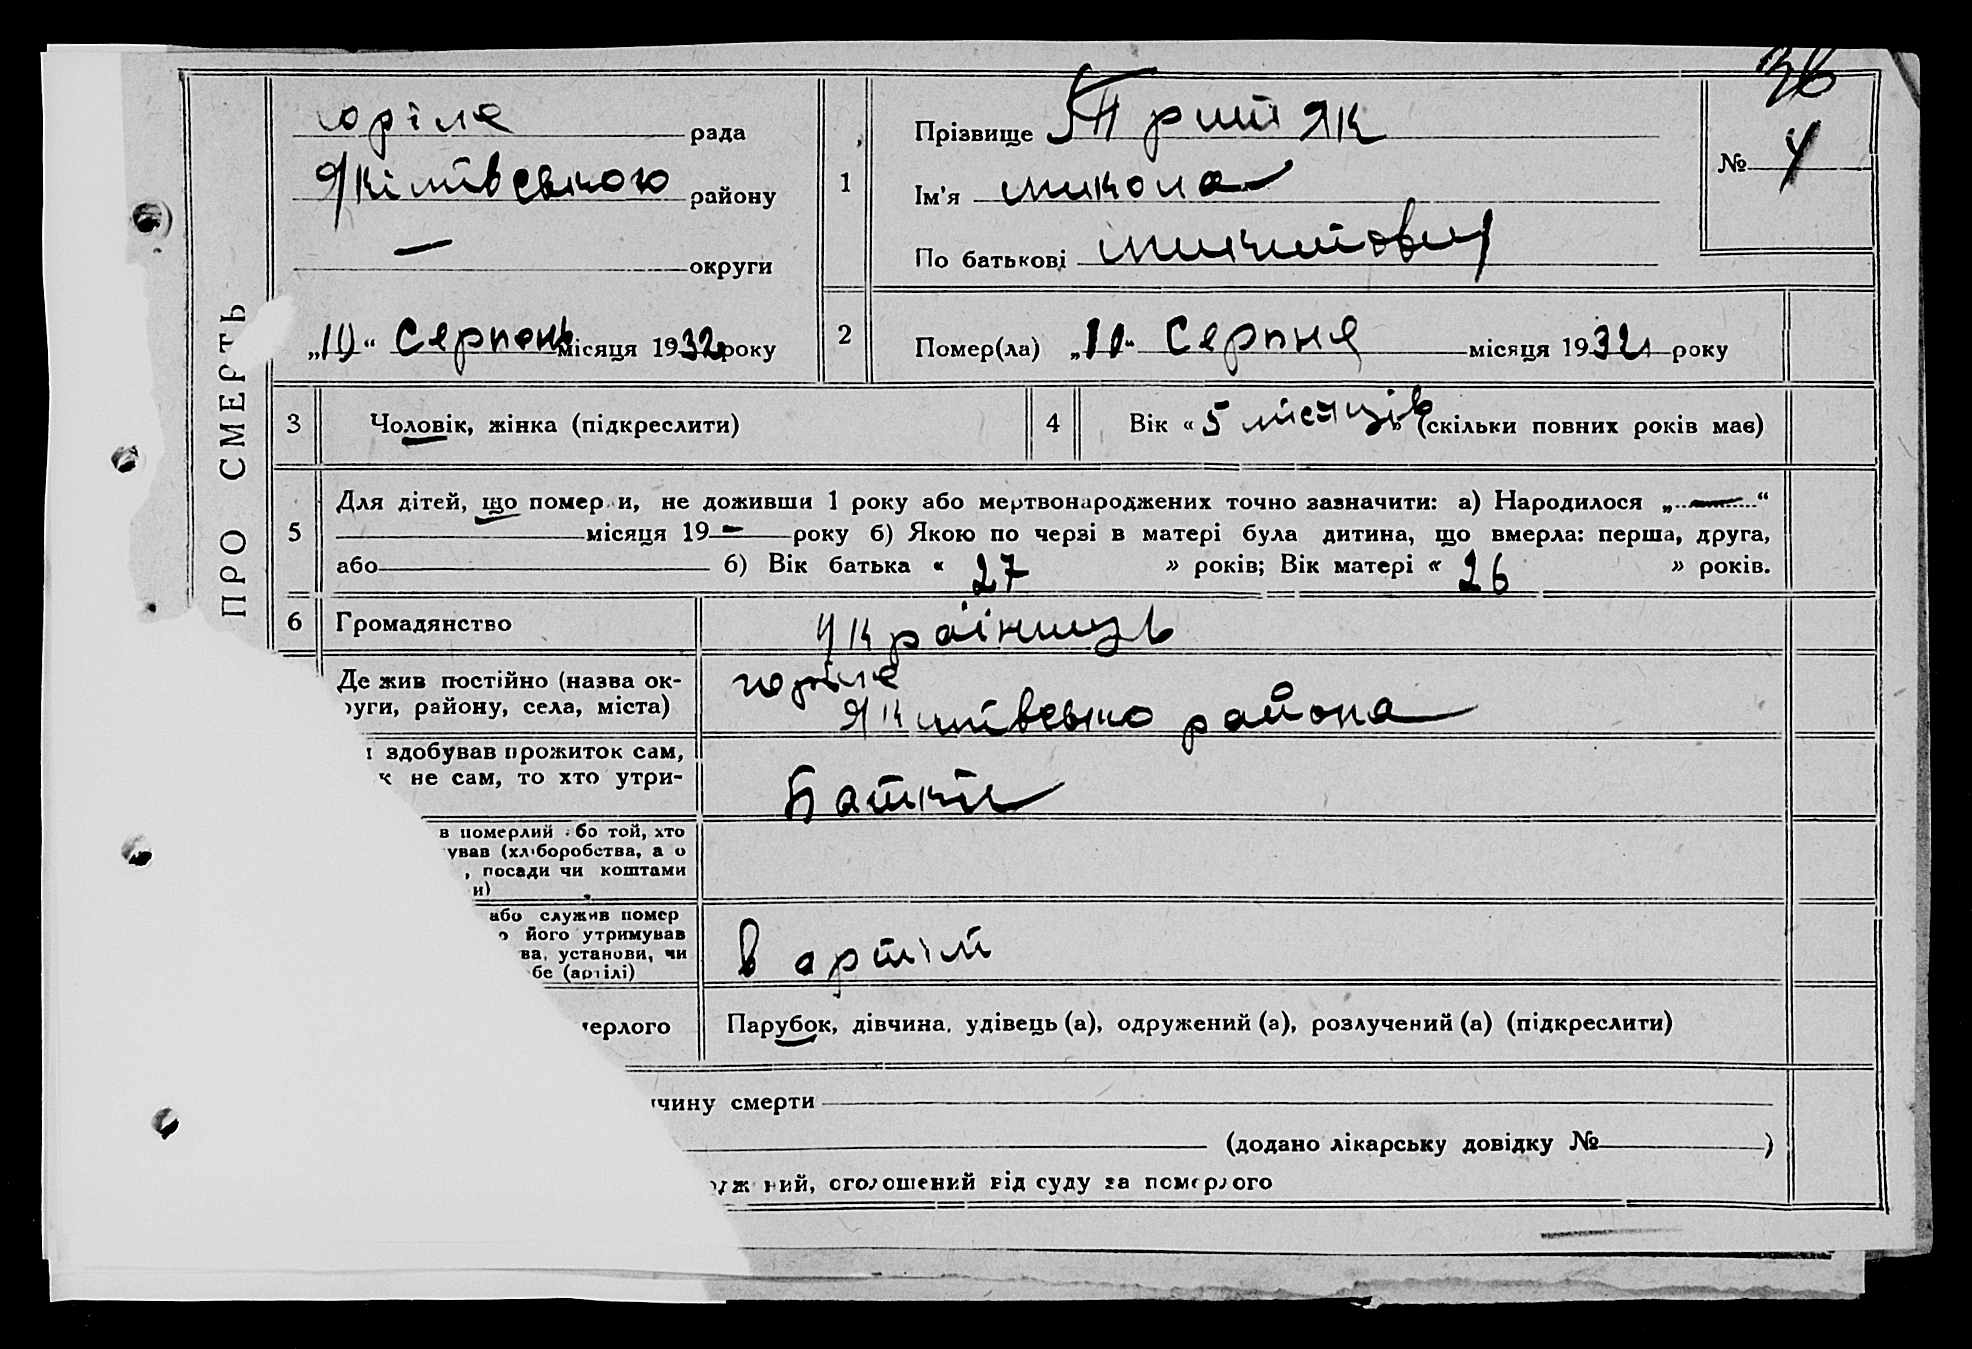 36
рада
Якімівського району
— округи
„10“ Серпень місяця 1932 року
ПРО СМЕРТЬ
1
Прізвище Притяк
Ім'я Микола
По батькові Микитович
№ 4
2
Помер(ла) „10“ Серпня місяця 1932 року
3
Чоловік, жінка (підкреслити)
4
Вік « 5 місяців » (скільки повних років має)
5
Для дітей, що померли, не доживши 1 року або мертвонароджених точно зазначити: а) Народилося „ — “
місяця 19 — року б) Якою по черзі в матері була дитина, що вмерла: перша, друга,
або б) Вік батька « 27 » років; Вік матері « 26 » років.
6
Громадянство
Українець
Де жив постійно (назва ок-
руги, району, села, міста)
района
здобував прожиток сам,
к не сам, то хто утри-
Батьки
в померлий або той, хто
ував (хліборобства, а о
, посади чи коштами
и)
або служив помер
о його утримував
ва, установи, чи
бе (артілі)
в артілі
мерлого
Парубок, дівчина, удівець (а), одружений (а), розлучений (а) (підкреслити)
ичину смерти
(додано лікарську довідку № )
одж ний, оголошений від суду за померлого